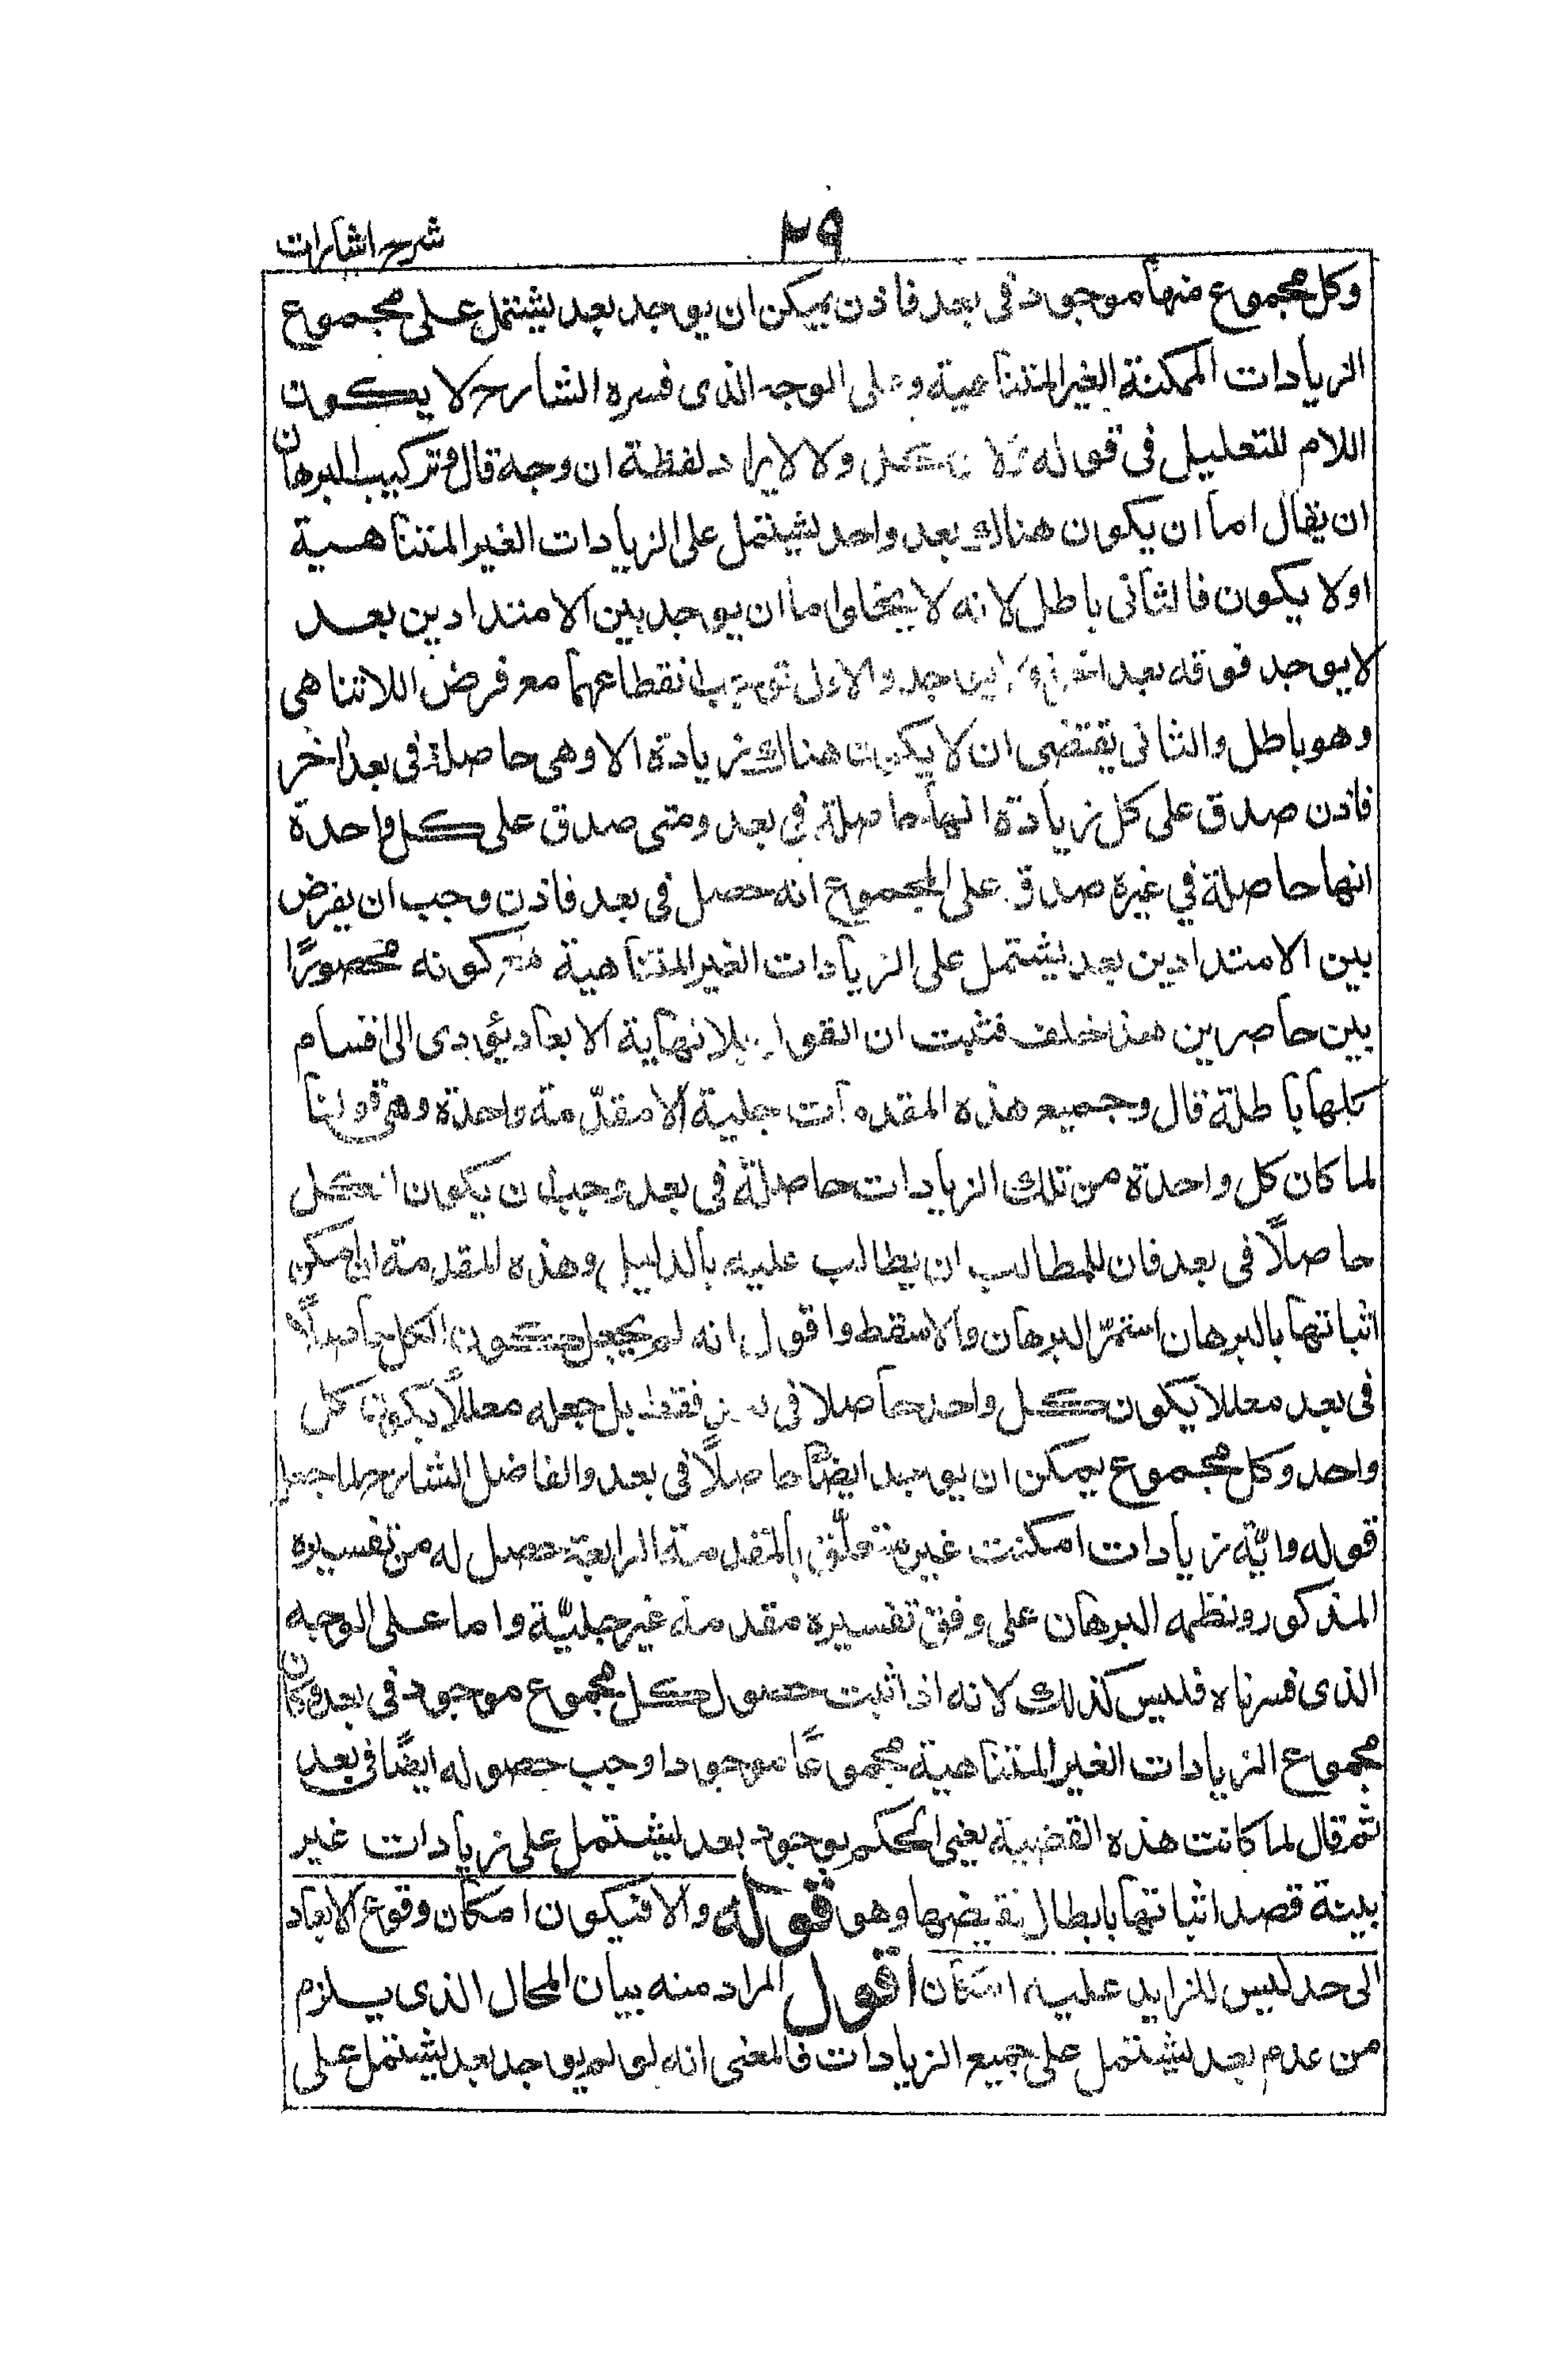 ٢٩
شرح اشارات
وكل مجموع منها موجود فى بعد فاذن يمكن ان يوجد بعد يشتمل على مجموع
الزيادات الممكنة الغير المتناهية وعلى الوجه الذى فسره الشارح لا يكون
اللام للتعليل فى قوله ولان كل ولا لايراد لفظة ان وجه قال وتركيب البرهان
ان يقال اما ان يكون هناك بعد واحد يشتمل على الزيادات الغير المتناهية
اولا يكون فالثانى باطل لانه لا يخلوا ما ان يوجد بين الامتدادين بعد
لا يوجد فوقه بعد اخر او لا يوجد والاول توجب انقطاعهما مع فرض اللاتناهى
وهو باطل والثانى يقتضى ان لا يكون هناك زيادة الا وهى حاصلة فى بعد اخر
فاذن صدق على كل زيادة انها حاصلة فى بعد ومتى صدق على كل واحدة
انها حاصلة في غيره صدق على المجموع انه حصل فى بعد فاذن وجب ان يفرض
بين الامتدادين بعد يشتمل على الزيادات الغير المتناهية مع كونه محصورًا
بين حاصرين هذا خلف فثبت ان القول بلا نهاية الابعاد يؤدى الى اقسام
كلها باطلة قال وجميع هذه المقدمات جلية الا مقدّمة واحدة وهى قولنا
لما كان كل واحدة من تلك الزيادات حاصلة فى بعد وجب ان يكون الكل
حاصلًا فى بعد فان للمطالب ان يطالب عليه بالدليل وهذه المقدمة ان امكن
اثباتها بالبرهان استمرّ البرهان والا سقط واقول انه لم يجعل كون الكل حاصلًا
فى بعد معللا بكون كل واحد حاصلا فى بعد فقط بل جعله معللًا بكون كل
واحد وكل مجموع يمكن ان يوجد ايضًا حاصلًا فى بعد والفاضل الشارح لما جعل
قوله وايّة زيادات امكنت غير متعلّق بالمقدمة الرابعة حصل له من تفسيره
المذكور ونظمه البرهان على وفق تفسيره مقدمة غير جليّة واما على الوجه
الذى فسرناه فليس كذلك لانه اذا ثبت حصول كل مجموع موجود فى بعد وكان
مجموع الزيادات الغير المتناهية مجموعًا موجودا وجب حصوله ايضًا فى بعد
ثم قال لما كانت هذه القضية يغنى الحكم بوجود بعد يشتمل على زيادات غير
بينة قصد اثباتها بابطال نقيضها وهو قوله والا فيكون امكان وقوع الابعاد
الى حد ليس للزايد عليه امكان اقول المراد منه بيان المحال الذى يلزم
من عدم بعد يشتمل على جميع الزيادات فالمعنى انه لو لم يوجد بعد يشتمل على